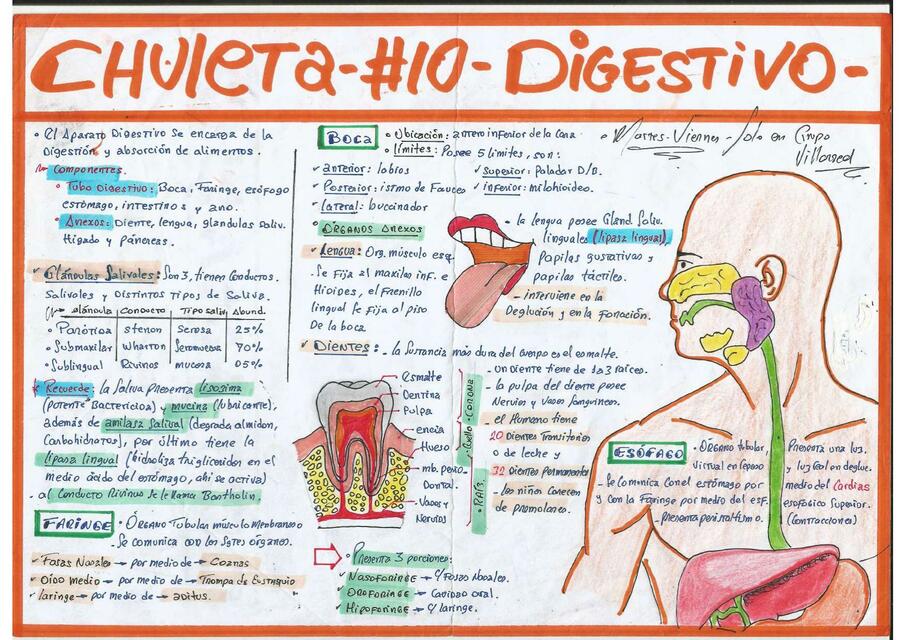 CHULETA-#10-DIGESTIVO-
• El Aparato Digestivo se encarga de la
Digestión y absorción de alimentos.
Componentes.
• Tubo Digestivo: Boca, Faringe, esófago
estómago, intestinos y ano.
• Anexos: Diente, lengua, glandulas saliv.
Higado y páncreas.
✓ Glándulas Salivales: Son 3, tienen Conductos.
Salivales y Distintos tipos de Saliva.
Glándula Conducto Tipo saliv. Abund.
• Parótida Stenon Serosa 25%
• Submaxilar Wharton Seromucosa 70%
• Sublingual Rivinus mucosa 05%
Recuerde: la Saliva presenta lisosima
(potente Bactericida) y mucina (lubricante),
además de amilasa salival (degrada almidon,
Carbohidratos), por último tiene la
lipasa lingual (hidroliza trigliceridos en el
medio ácido del estómago, ahi se activa)
Conducto Rivinus se le llama Bartholin.
FARINGE • Órgano Tubular músculo Membranoso
- Se comunica con los Sgtes órganos.
✓ Fosas Nasales → por medio de → Coanas
✓ Oido medio → por medio de → Trompa de Eustaquio
✓ laringe → por medio de → aditus.
BOCA • Ubicación: antero inferior de la Cara
• Límites: Posee 5 limites, son:
✓ anterior: labios
✓ Superior: Paladar D/B.
✓ Posterior: istmo de Fauces
✓ inferior: milohioideo.
✓ Lateral: buccinador
• Órganos Anexos
✓ Lengua: Org. músculo esq.
- Se fija al maxilar inf. e
Hioides, el Frenillo
lingual le fija al piso
De la boca
• la lengua posee Gland Saliv.
linguales (lipasa lingual),
Papilas gustativas y
papilas táctiles.
- interviene en la
Deglución y en la fonación.
✓ Dientes: - la sustancia más dura del Cuerpo es el esmalte.
- un Diente tiene de 1 a 3 raíces.
- la pulpa del diente posee
Nervios y vasos Sanguineos.
- el Humano tiene
20 Dientes Transitorios
o de leche y
32 Dientes permanentes
- los niños carecen
de premolares.
Esmalte
Dentina
Pulpa
encia
Hueso
mb. perio-
Dontal.
Vasos y
Nervios
Corona
Cuello
RAÍZ
• Presenta 3 porciones:
✓ Nasofaringe → y Fosas Nasales.
✓ Orofaringe → Cavidad oral.
✓ Hipofaringe → y laringe.
Martes-Viernes - Solo en Grupo
Villarreal
ESÓFAGO • Órgano tubular,
virtual en reposo
- Se comunica con el estómago por
y con la Faringe por medio del esf.
- presenta peristaltismo.
Presenta una luz
y luz real en deglue.
medio del Cardias
esofágico Superior.
(Contracciones)